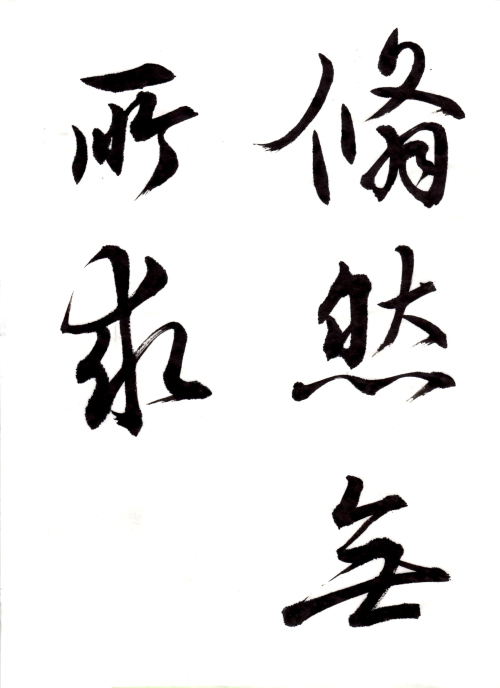 翛然無
所求